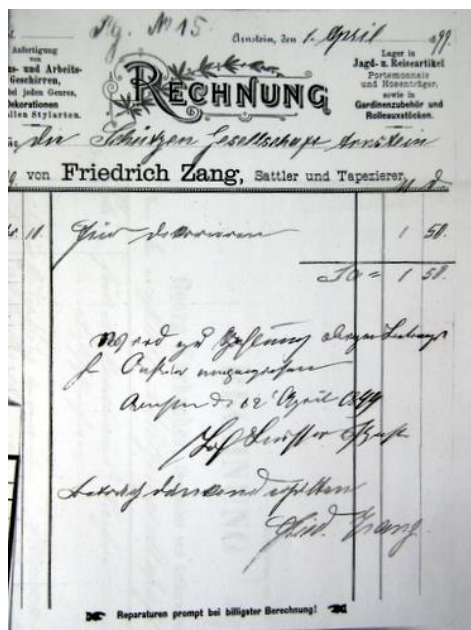 Pg. № 15.
Arnstein, den 1. April 1899.
Anfertigung
von
und Arbeits-
Geschirren,
jeden Genres,
Dekorationen
allen Stylarten.
RECHNUNG
Lager in
Jagd- u. Reiseartikel
Portemonnaie
und Hosenträger,
sowie in
Gardinenzubehör und
Rolleauxstöcken.
die Schützen Gesellschaft Arnstein
von Friedrich Zang, Sattler und Tapezierer,
10. Für dekorieren 1 50.
Sa = 1 50.
Wird zur Zahlung obigen Betrags
Arnstein d. 12 April 1899
Betrag dankend erhalten
Fried. Zang.
Reparaturen prompt bei billigster Berechnung!